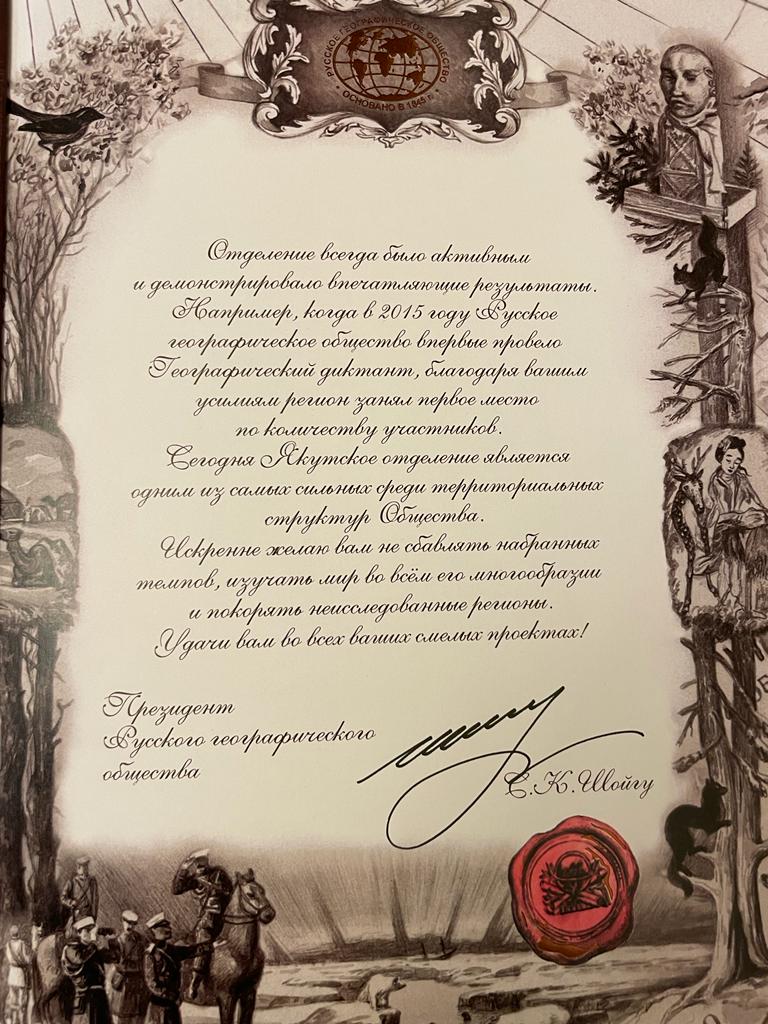 РУССКОЕ ГЕОГРАФИЧЕСКОЕ ОБЩЕСТВО
ОСНОВАНО В 1845 г.
Отделение всегда было активным
и демонстрировало впечатляющие результаты.
Например, когда в 2015 году Русское
географическое общество впервые провело
Географический диктант, благодаря вашим
усилиям регион занял первое место
по количеству участников.
Сегодня Якутское отделение является
одним из самых сильных среди территориальных
структур Общества.
Искренне желаю вам не сбавлять набранных
темпов, изучать мир во всём его многообразии
и покорять неисследованные регионы.
Удачи вам во всех ваших смелых проектах!
Президент
Русского географического
общества
С.К.Шойгу